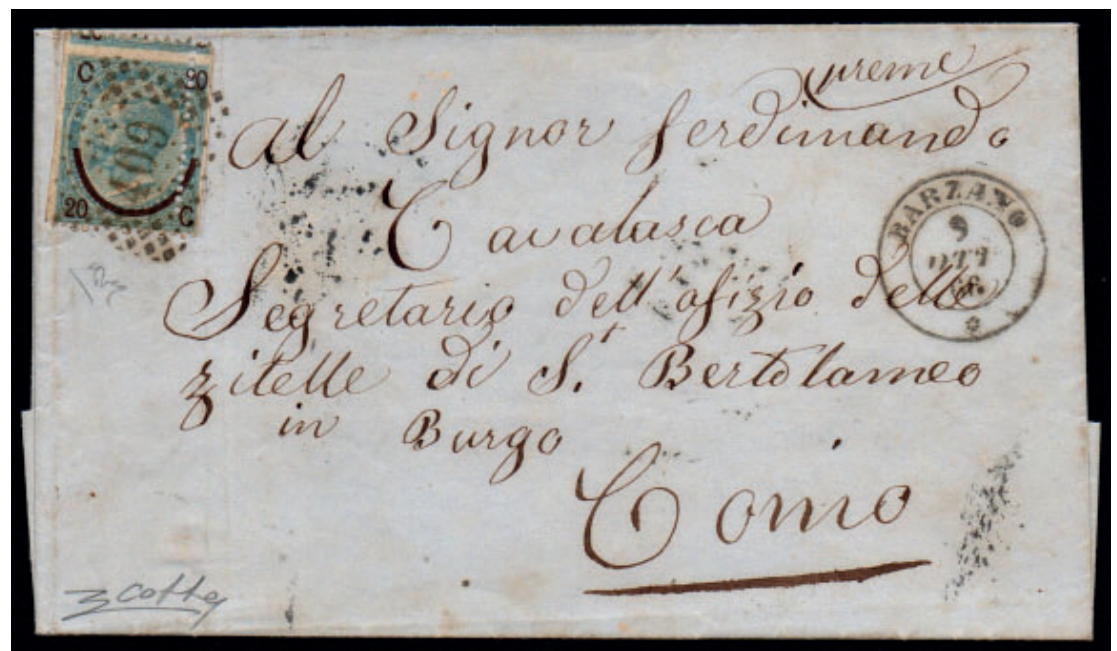 preme
C 20
409
20 C
Al Signor Ferdinando
Cavalasca
Segretario dell'ofizio delle
zitelle di S.t Bertolameo
in Burgo
Como
BARZANO
9
OTT
66